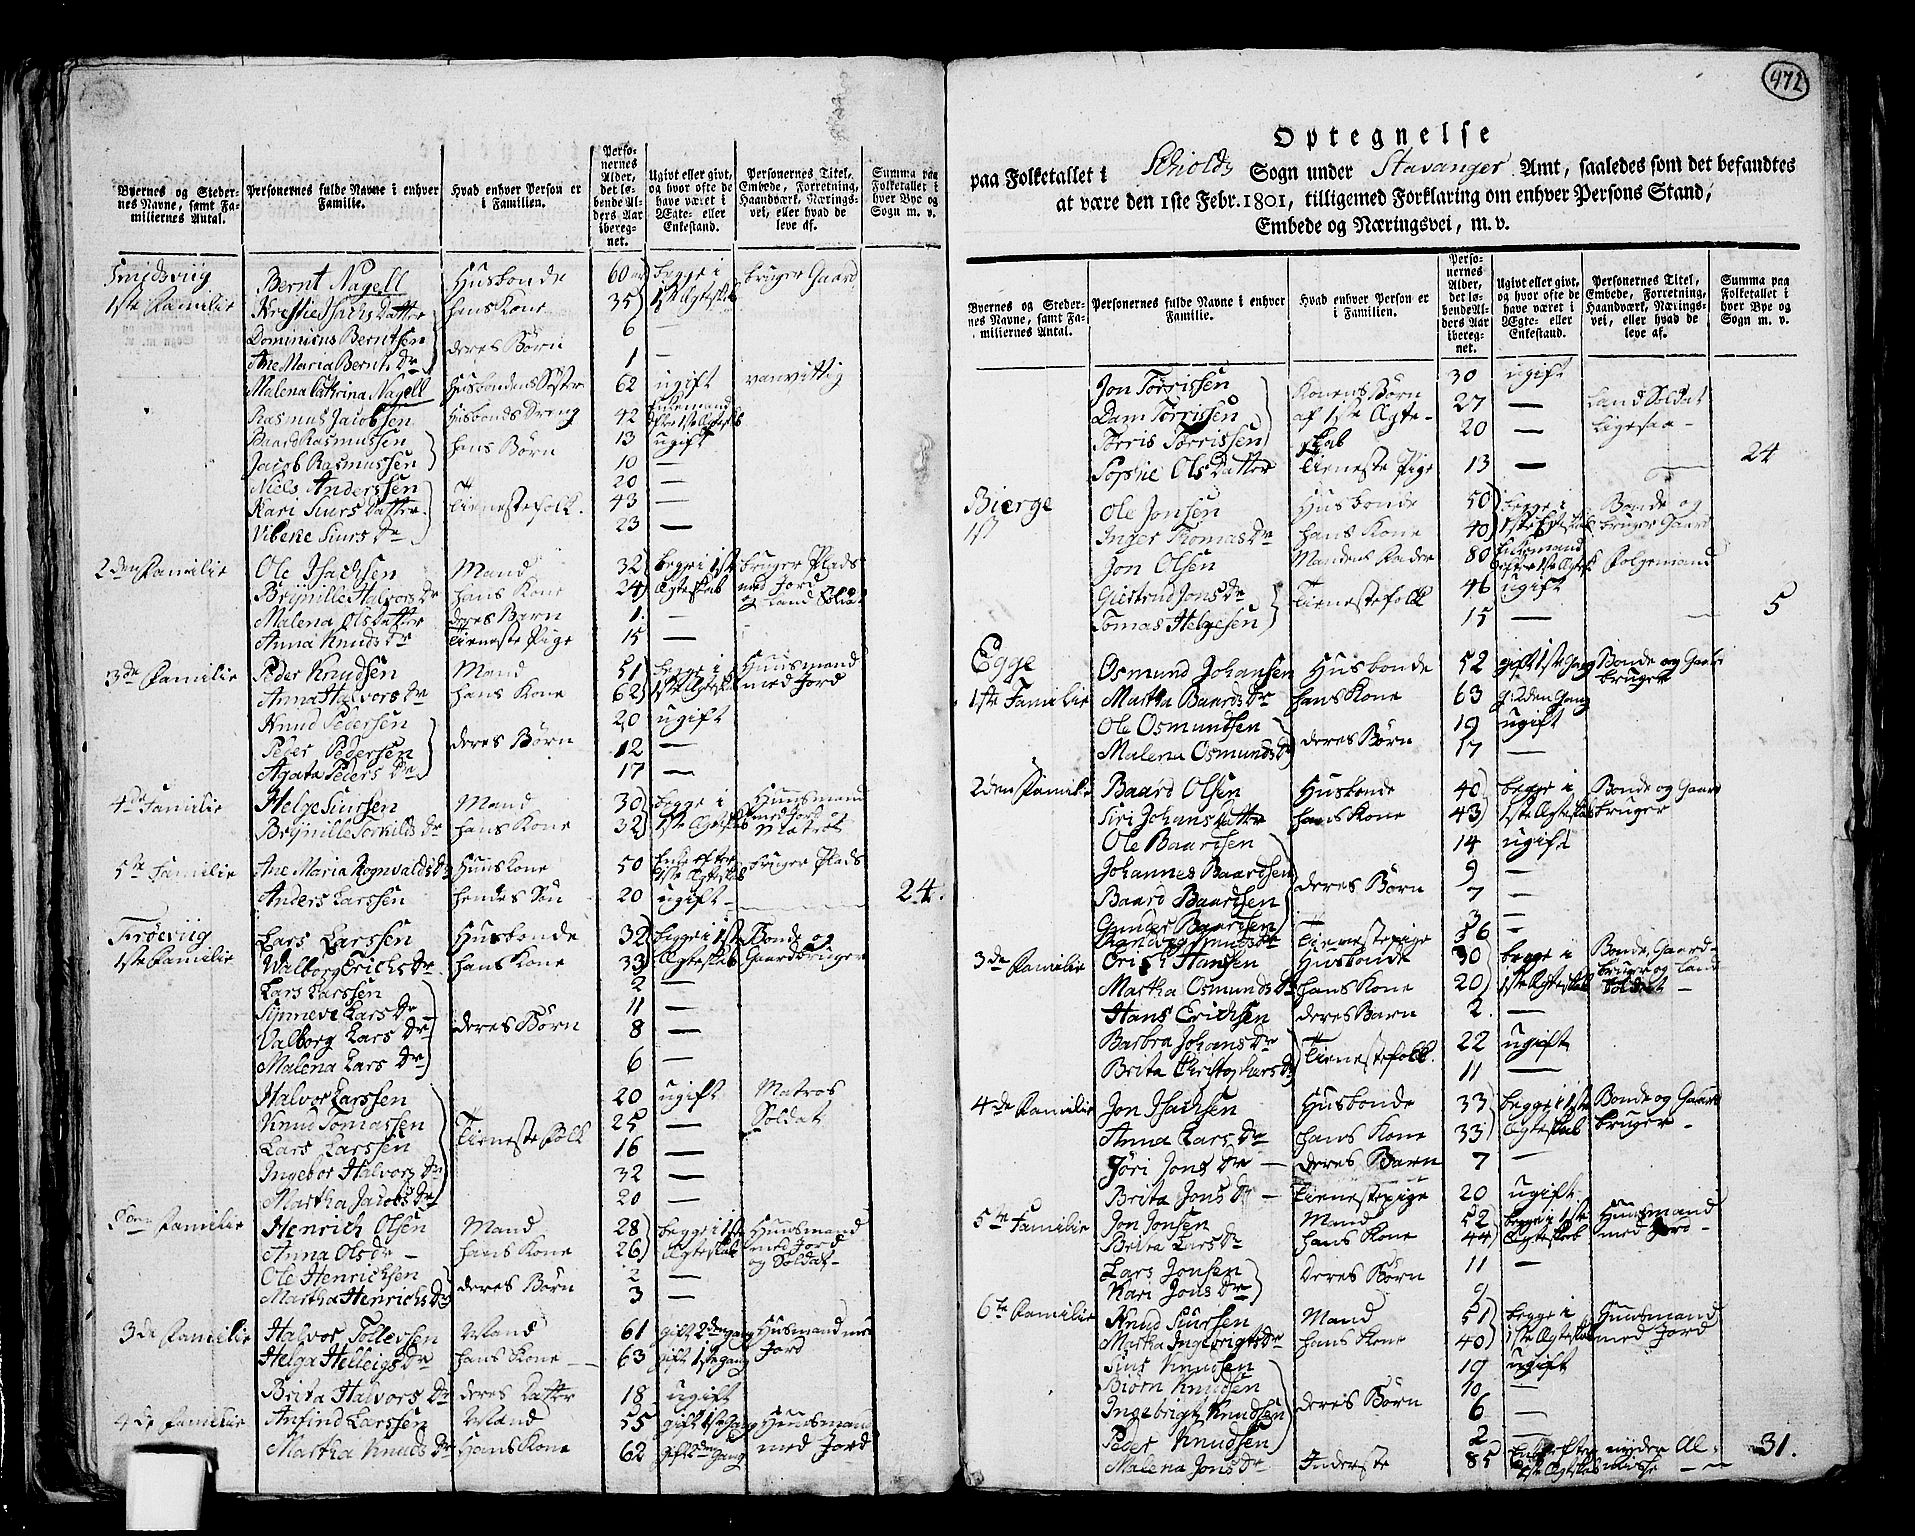 Byernes og Steder-
nes Navne, samt Fa-
miliernes Antal.
Personernes fulde Navne i enhver
Familie.
Hvad enhver Person er
i Familien.
Perso-
nernes
Alder,
det lø-
bende Al-
ders Aar
ibereg-
net.
Ugivt eller givt,
og hvor ofte de
have været i
Ægte- eller
Enkestand.
Personernes Titel,
Embede, Forretning,
Haandværk, Nærings-
vei, eller hvad de
leve af.
Summa paa
Folketallet i
hver Bye og
Sogn m. v.
1ste Familie
Bernt Nagell Husbonde 60 begge i bruger Gaard
Isachs Datter hans Kone 35 1ste Ægteskab
Dominicus Berntsen 6 —
Ane Maria Bernts Dr deres Børn 1 —
Malena Cathrina Nagell Husbondens Søster 62 ugift vanvittig
Rasmus Jacobsen Husbonds Dreng 42 Enkemand
efter 1ste Ægteskab
Baard Rasmussen 13 ugift
Jacob Rasmussen hans Børn 10 —
Niels Anderssen 20 —
Kari Siurs Datter Tienestefolk. 43 —
Vibeke Siurs Dr 23 —
2den Familie Ole Isachsen Mand 32 begge i 1ste bruger Plads
Brynille Halvors Dr hans Kone 24 Ægteskab med Jord
og Land Soldat
Malena Ols Datter deres Barn 1. —
Anna Knuds Dr Tieneste Pige 15 —
3de Familie Peder Knudsen Mand 51 begge i Huusmand
Anna Halvors Dr hans Kone 62 1ste Ægteskab med Jord
Knud Pedersen 20 ugift
Peder Pedersen deres Børn 12 —
Agata Peders Dr 17 —
4de Familie Helge Siursen Mand 30 begge i Huusmand
Brynille Torkilds Dr hans Kone 32 1ste Ægteskab med Jord og
Matros
5te Familie Ane Maria Rognvalds Dr Huuskone 50 Enke efter bruger Plads
1ste Ægteskab
Anders Larssen hendes Søn 20 ugift — 24.
Frøeviig Lars Larssen Husbonde 32 begge i 1ste Bonde og
1ste Familie Walborg Erichs Dr hans Kone 33 Ægteskab Gaardbruger
Lars Larssen 2 —
Synneve Lars Dr 11 —
Valborg Lars Dr deres Børn 8 —
Malena Lars Dr 6 —
Halvor Larssen 20 ugift Matros
Knud Tomassen 25 — Soldat
Lars Larssen Tienestefolk 16 —
Ingebor Halvors Dr 32 —
Martha Jacobs Dr 20 —
2den Familie Henrich Olsen Mand 28 begge i 1ste Huusmand
Anna Olsdr — hans Kone 26 Ægteskab med Jord
og Soldat —
Ole Henrichsen 2 —
Martha Henrichs Dr deres Børn 3 —
3de Familie Halvor Tollevsen Mand 61 gift 2de gang Husmand med
Helga Helleigs Dr hans Kone — 63 gift 1ste gang Jord
Brita Halvors Dr deres Datter 18 ugift
4de Familie Anfind Larssen Mand 55 gift 1ste Gang Huusmand
Martha Knuds Dr Hans Kone 62 gift 2den Gang med Jord
472
Optegnelse
paa Folketallet i Schiolds Sogn under Stavanger Amt, saaledes som det befandtes
at være den 1ste Febr. 1801, tilligemed Forklaring om enhver Persons Stand,
Embede og Næringsvei, m. v.
Byernes og Steder-
nes Navne, samt Fa-
miliernes Antal.
Personernes fulde Navne i enhver
Familie.
Hvad enhver Person er
i Familien.
Perso-
nernes
Alder,
det lø-
bende Al-
ders Aar
ibereg-
net.
Ugivt eller givt,
og hvor ofte de
have været i
Ægte- eller
Enkestand.
Personernes Titel,
Embede, Forretning,
Haandværk, Nærings-
vei, eller hvad de
leve af.
Summa paa
Folketallet i
hver Bye og
Sogn m. v.
Jon Tørrissen Konens Børn 30 ugift
Dam Tørrissen af 1ste Ægte- 27 — Land Soldat
Tørris Tørrissen skab 20 — ligesaa —
Sophie Ols Datter Tieneste Pige 13 — 24
Bierge Ole Jonsen Husbonde 50 begge i Bonde og
Inger Thomas Dr hans Kone 40 1ste Ægteskab bruger Gaard
Jon Olsen Mandens Fader 80 Enkemand Folgemand
efter 1ste Ægtesk
Giertrud Jons Dr 46 ugift
Tomas Helgesen Tienestefolk 15 — 5
Egge Osmund Johansen Husbonde 52 gift 1ste Gang Bonde og Gaard
1ste Familie Martha Baards Dr hans Kone 63 g. 2den Gang bruger
Ole Osmundsen 19 ugift
Malena Osmunds Dr deres Børn 17 —
2den Familie Baard Olsen Husbonde 40 begge i Bonde og Gaard
Siri Johans Datter hans Kone 43 1ste Ægteskab bruger
Ole Baardsen 14 ugift
Johannes Baardsen 9 —
Baard Baardsen deres Børn 7 —
Gunder Baardsen 3 —
Tienestepige
3de Familie Erich Hansen Husbonde 30 begge i Bonde, Gaard-
Martha Osmunds Dr hans Kone 20 1ste Ægteskab bruger og Land
Soldat —
Hans Erichsen deres Barn 2 —
Barbra Johans Dr 22 ugift
Brita Christophers Dr Tienestefolk. 11 —
4de Familie Jon Isachsen Husbonde 33 begge i 1ste Bonde og Gaard
Anna Lars Dr hans Kone 33 Ægteskab bruger —
Jøri Jons Dr — deres Barn 7 —
Brita Jons Dr — Tienestepige 20 ugift
5te Familie Jon Jonsen Mand 52 begge i 1ste Huusmand
Brita Lars Dr hans Kone 44 Ægteskab med Jord —
Lars Jonsen Deres Børn 11 —
Kari Jons Dr 9
6te Familie Knud Siurssen Mand 51 begge i Huusmand
Martha Ingebrigts Dr hans Kone 40 1ste Ægteskab med Jord
Siur Knudsen 19 ugift
Biørn Knudsen 10 —
Ingebrigt Knudsen deres Børn 6 —
Peder Knudsen 2 —
Malena Jons Dr Inderste 85 Enke efter nyder Al-
1ste Ægteskab misse — 31.